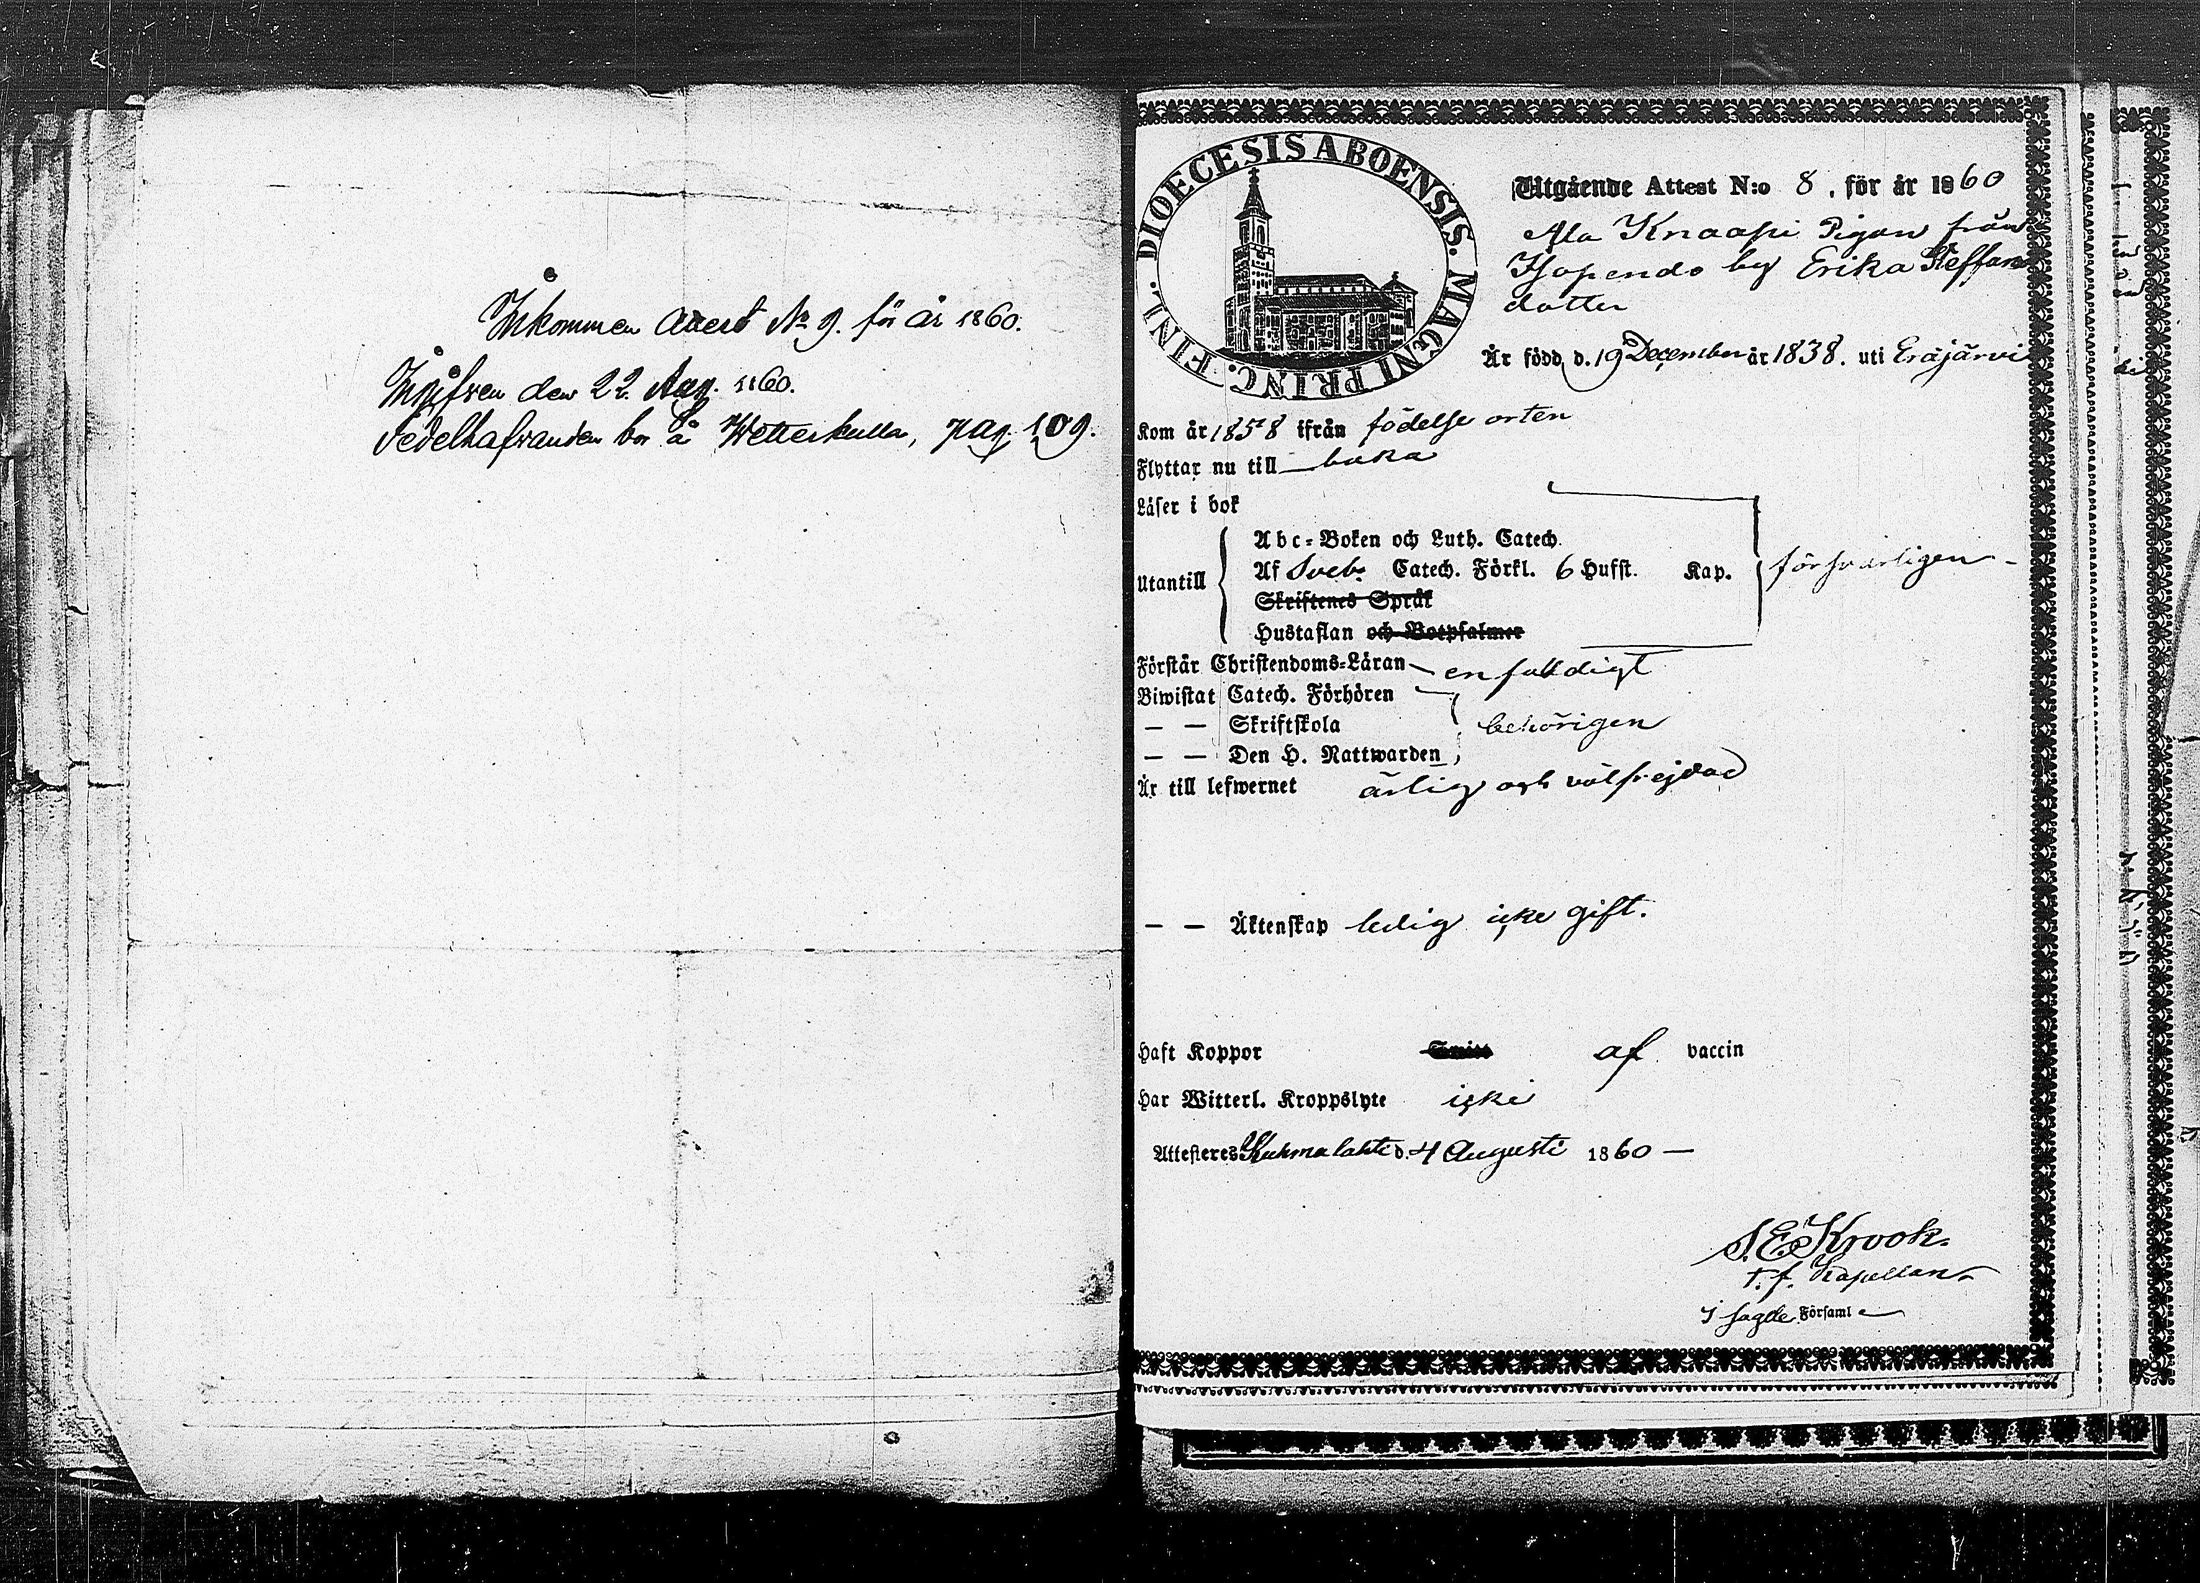 Inkommen Attest No 9. för år 1860.
Inskrifven den 22. Aug. 1860.
Sedelhafvanden bor å Wetterkulla, pag. 109.
DIOECESIS ABOENSIS. MAGNI PRINC. FINL.
Utgående Attest N:o 8, för år 1860
Ala Knaapi Pigan från
Hopendo by Erika Steffans
dotter
Är född d. 19 December år 1838. uti Eräjärvi
Kom år 1858 ifrån födelse orten
Flyttar nu till baka
Läser i bok
Abc-Boken och Luth. Catech.
Utantill Af Sveb. Catech. Förkl. 6 Hufst. Kap. försvarligen
Skriftenes Språk
Hustaflan och Botpsalmer
Förstår Christendoms-Läran enfaldigt
Biwistat Catech. Förhören
— — Skriftskola behörigen
— — Den H. Nattwarden
Är till lefwernet ärlig och välfrejdad
— — Äktenskap ledig icke gift.
Haft Koppor af vaccin
Har Witterl. Kroppslyte icke
Attesteres Kuhmalahti d. 4 Augusti 1860 —
S. E. Krook.
t. f. Kapellan
i sagde Församl